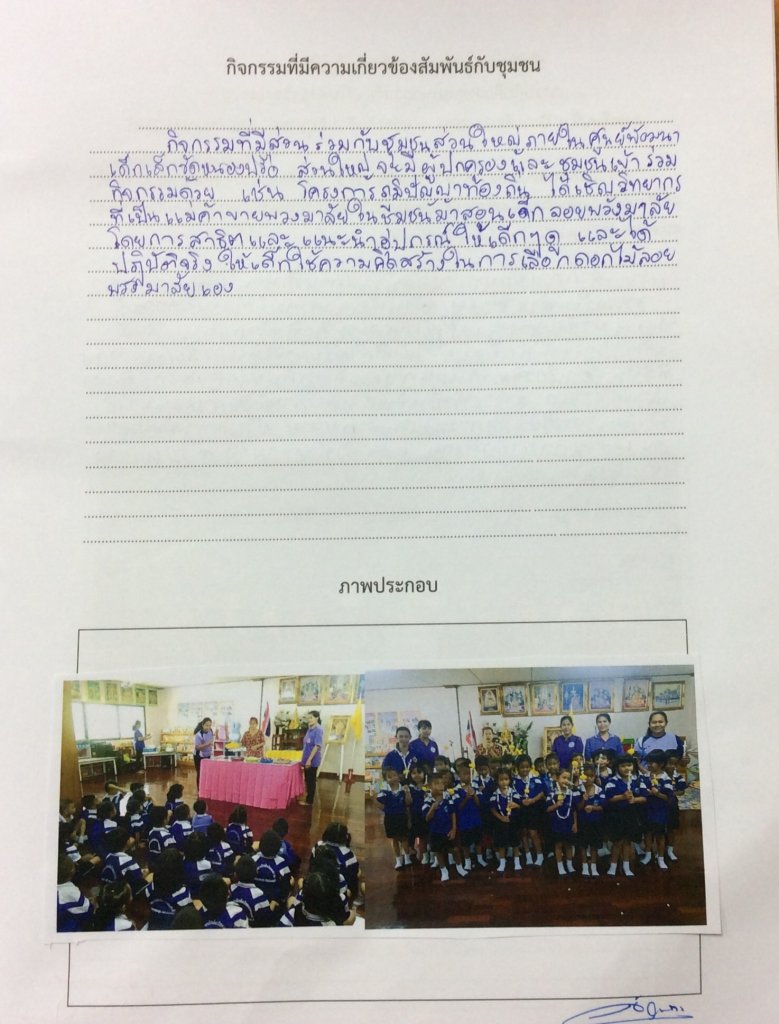 กิจกรรมที่มีความเกี่ยวข้องสัมพันธ์กับชุมชน
กิจกรรมที่มีส่วนร่วมกับชุมชนส่วนใหญ่ภายในศูนย์พัฒนา
เด็กเล็กวัดหนองปรือ ส่วนใหญ่จะมีผู้ปกครองและชุมชนเข้าร่วม
กิจกรรมด้วย เช่น โครงการภูมิปัญญาท้องถิ่น ได้เชิญวิทยากร
ที่เป็นแม่ค้าขายพวงมาลัยในชุมชนมาสอนเด็กลอยพวงมาลัย
โดยการสาธิตและแนะนำอุปกรณ์ให้เด็กๆดู และได้
ปฏิบัติจริง ให้เด็กใช้ความคิดสร้างในการเลือกดอกไม้ลอย
พวงมาลัยเอง
ภาพประกอบ